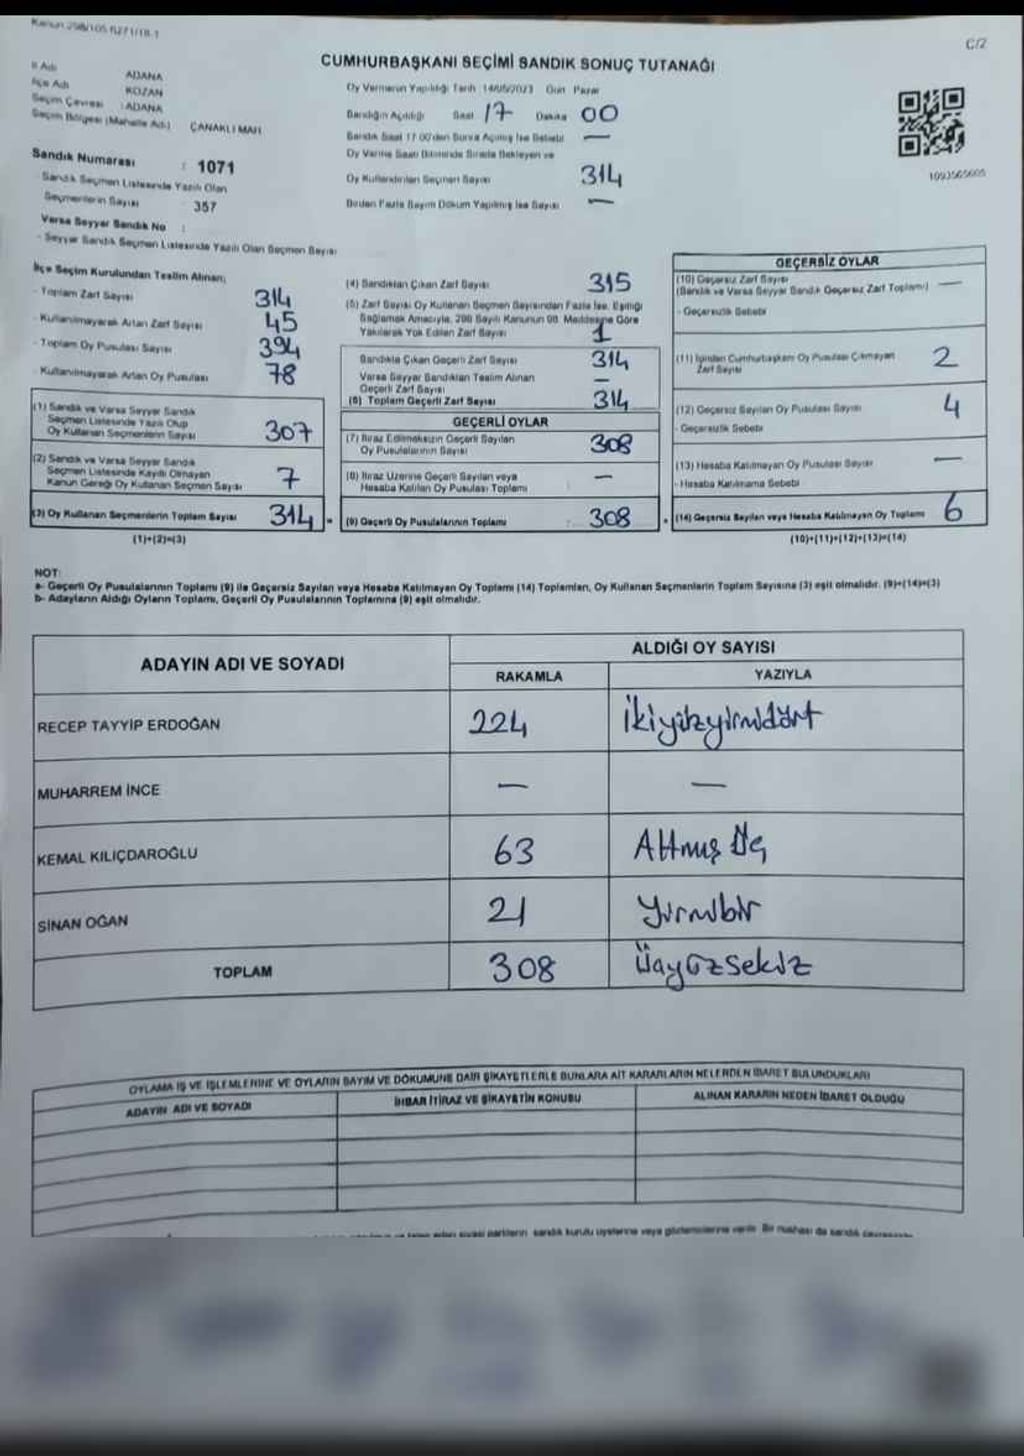 C/2
CUMHURBAŞKANI SEÇİMİ SANDIK SONUÇ TUTANAĞI
İl Adı ADANA
İlçe Adı KOZAN
Seçim Çevresi : ADANA
Seçim Bölgesi (Mahalle Adı) ÇANAKLI MAH
Sandık Numarası : 1071
Sandık Seçmen Listesinde Yazılı Olan
Seçmenlerin Sayısı 357
Varsa Seyyar Sandık No :
- Seyyar Sandık Seçmen Listesinde Yazılı Olan Seçmen Sayısı
Oy Vermenin Yapıldığı Tarih 14/05/2023 Gün Pazar
Sandığın Açıldığı Saat 17 Dakika 00
Sandık Saat 17.00'den Sonra Açılmış İse Sebebi —
Oy Verme Saati Bitiminde Sırada Bekleyen ve
Oy Kullandırılan Seçmen Sayısı 314
Birden Fazla Sayım Döküm Yapılmış İse Sayısı —
İlçe Seçim Kurulundan Teslim Alınan;
- Toplam Zarf Sayısı 314
- Kullanılmayarak Artan Zarf Sayısı 45
- Toplam Oy Pusulası Sayısı 394
- Kullanılmayarak Artan Oy Pusulası 78
(1) Sandık ve Varsa Seyyar Sandık
Seçmen Listesinde Yazılı Olup
Oy Kullanan Seçmenlerin Sayısı 307
(2) Sandık ve Varsa Seyyar Sandık
Seçmen Listesinde Kayıtlı Olmayan
Kanun Gereği Oy Kullanan Seçmen Sayısı 7
(3) Oy Kullanan Seçmenlerin Toplam Sayısı 314
(1)+(2)=(3)
(4) Sandıktan Çıkan Zarf Sayısı 315
(5) Zarf Sayısı Oy Kullanan Seçmen Sayısından Fazla İse, Eşitliği
Sağlamak Amacıyla, 298 Sayılı Kanunun 98. Maddesine Göre
Yakılarak Yok Edilen Zarf Sayısı 1
Sandıkta Çıkan Geçerli Zarf Sayısı 314
Varsa Seyyar Sandıktan Teslim Alınan
Geçerli Zarf Sayısı —
(6) Toplam Geçerli Zarf Sayısı 314
GEÇERLİ OYLAR
(7) İtiraz Edilmeksizin Geçerli Sayılan
Oy Pusulalarının Sayısı 308
(8) İtiraz Üzerine Geçerli Sayılan veya
Hesaba Katılan Oy Pusulası Toplamı —
(9) Geçerli Oy Pusulalarının Toplamı 308
GEÇERSİZ OYLAR
(10) Geçersiz Zarf Sayısı
(Sandık ve Varsa Seyyar Sandık Geçersiz Zarf Toplamı) —
- Geçersizlik Sebebi
(11) İçinden Cumhurbaşkanı Oy Pusulası Çıkmayan
Zarf Sayısı 2
(12) Geçersiz Sayılan Oy Pusulası Sayısı 4
- Geçersizlik Sebebi
(13) Hesaba Katılmayan Oy Pusulası Sayısı —
- Hesaba Katılmama Sebebi
(14) Geçersiz Sayılan veya Hesaba Katılmayan Oy Toplamı 6
(10)+(11)+(12)+(13)=(14)
NOT:
a- Geçerli Oy Pusulalarının Toplamı (9) ile Geçersiz Sayılan veya Hesaba Katılmayan Oy Toplamı (14) Toplamları, Oy Kullanan Seçmenlerin Toplam Sayısına (3) eşit olmalıdır. (9)+(14)=(3)
b- Adayların Aldığı Oyların Toplamı, Geçerli Oy Pusulalarının Toplamına (9) eşit olmalıdır.
ADAYIN ADI VE SOYADI
ALDIĞI OY SAYISI
RAKAMLA YAZIYLA
RECEP TAYYİP ERDOĞAN 224 İkiyüzyirmidört
MUHARREM İNCE — —
KEMAL KILIÇDAROĞLU 63 Altmış Üç
SİNAN OĞAN 21 Yirmibir
TOPLAM 308 Üçyüzsekiz
OYLAMA İŞ VE İŞLEMLERİNE VE OYLARIN SAYIM VE DÖKÜMÜNE DAİR ŞİKAYETLERLE BUNLARA AİT KARARLARIN NELERDEN İBARET BULUNDUKLARI
ADAYIN ADI VE SOYADI İHBAR İTİRAZ VE ŞİKAYETİN KONUSU ALINAN KARARIN NEDEN İBARET OLDUĞU
siyasi partilerin sandık kurulu üyelerine veya gözlemcilerine verilir. Bir nüshası da sandık